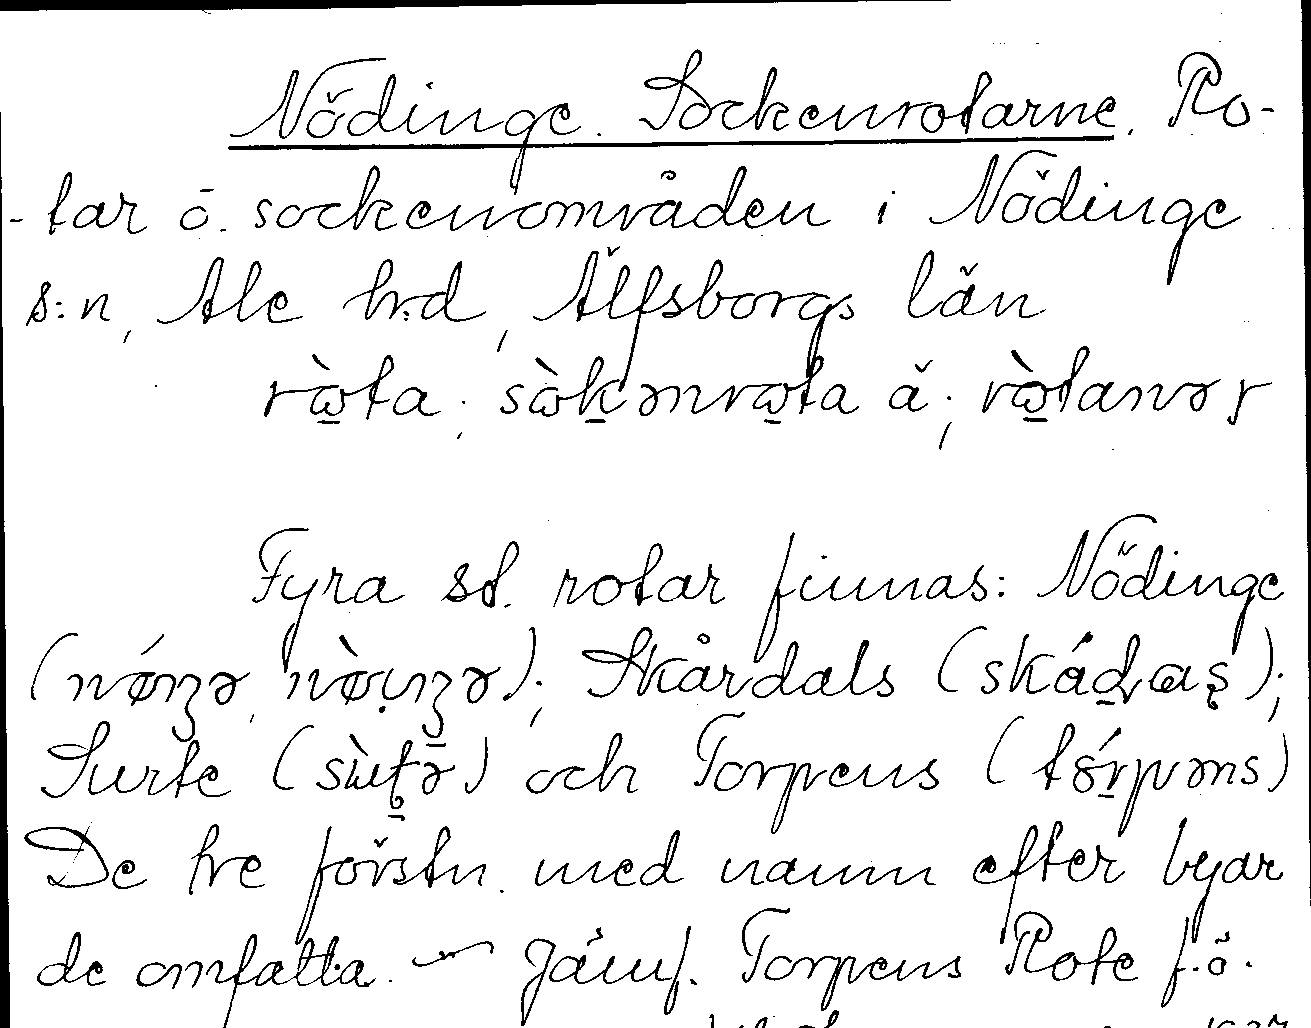 Nödinge. Sockenrotarne. Ro-
-tar o. sockenområden i Nödinge
s:n, Ale h:d, Älfsborgs län
rò̱ta; sò̱ḵənro̱ta ä; rò̱tanəɼ
Fyra sd. rotar finnas: Nödinge
(nǿŋə, nø̀ɩŋə); Skårdals (skáḏɑʂ);
Surte (sùʈə) och Torpens (tórpəns)
De tre förstn. med namn efter byar
de omfatta. — Jämf. Torpens Rote f.ö.